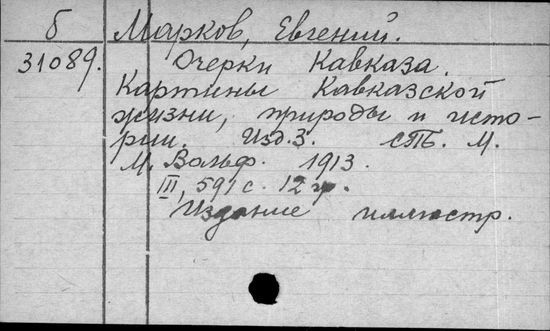 б Марков, Евгений.
31089. Очерки Кавказа.
Картины Кавказской
жизни, природы и исто-
рии. Изд. 3. СПб. М.
М. Вольф. 1913.
III, 591 с. 12 гр.
Издание иллюстр.